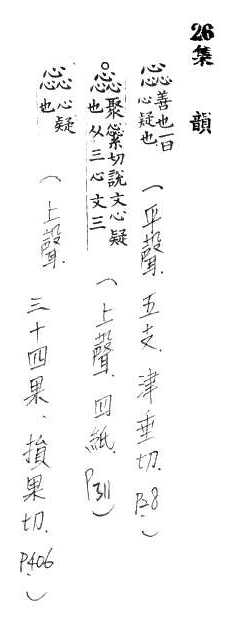 26集韻
惢善也一曰心疑也(平聲.五支.津垂切.P28.)
。惢聚惢紫切說文心疑也从三心文三(上聲.四紙.P311)
惢心疑也(上聲.三十四果、損果切.P406.)